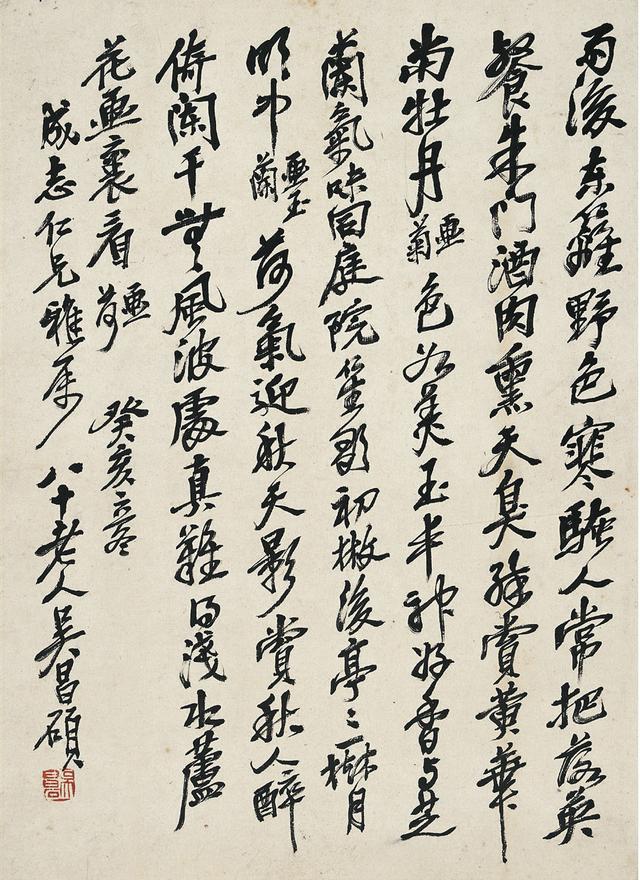 雨後東籬野色寒騷人常把落英
餐朱門酒肉熏天臭除賞黄華
尚牡丹畫菊色如美玉丰神好香与芝
蘭氣味同庭院笙歌初撤後亭亭一樹月
明中畫玉蘭荷氣迎秋天影賞秋人醉
倚闌干無風波處真難得淺水蘆
花畫裏看畫荷癸亥立冬
成志仁兄雅屬八十老人吳昌碩